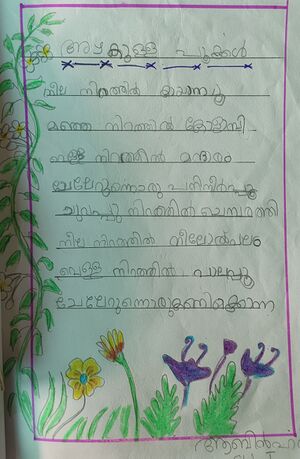 അഴകുള്ള പൂക്കൾ
നീല നിറത്തിൽ
മഞ്ഞ നിറത്തിൽ കോളാമ്പി
വെള്ള നിറത്തിൽ മന്ദാരം
ചേലേറുന്നൊരു പനിനീർപൂ
ചുവപ്പു നിറത്തിൽ ചെമ്പരത്തി
നീല നിറത്തിൽ നീലോൽപലം
വെള്ള നിറത്തിൽ പാലപ്പൂ
ചേലേറുന്നൊരു കണിക്കൊന്ന